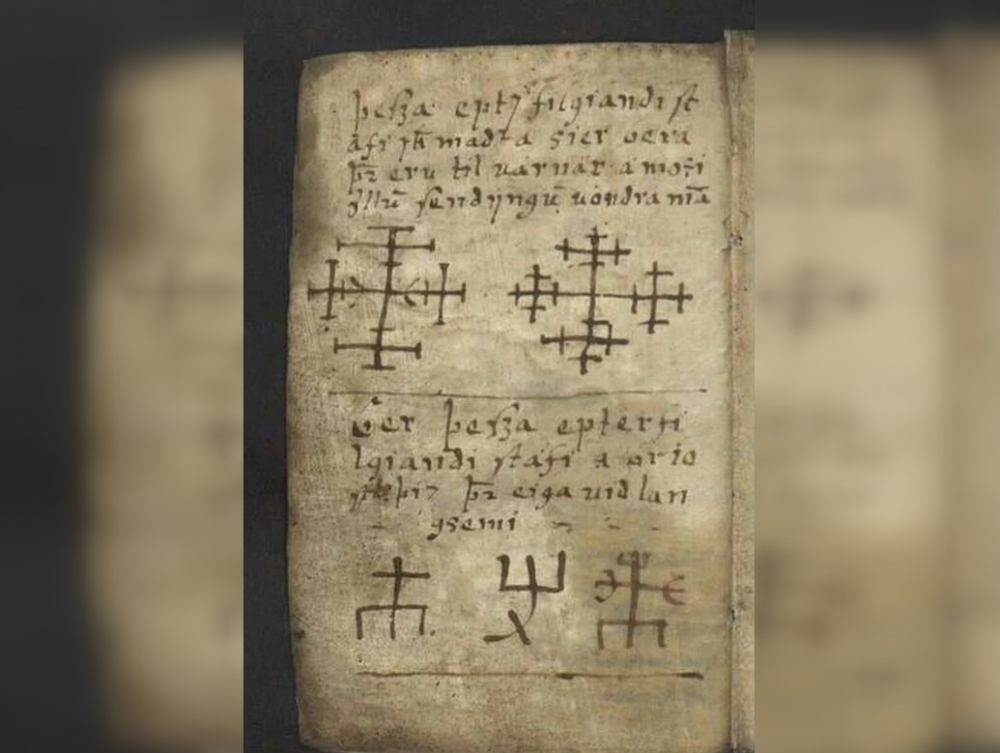 þesza epter filgiandi st
afi sk madr a sier bera
þr eru til varnar a moti
ollū sendijngū vondra mā
Ber þesza epterfi
lgiandi stafi a brio
þr eiga vid lan
gsemi